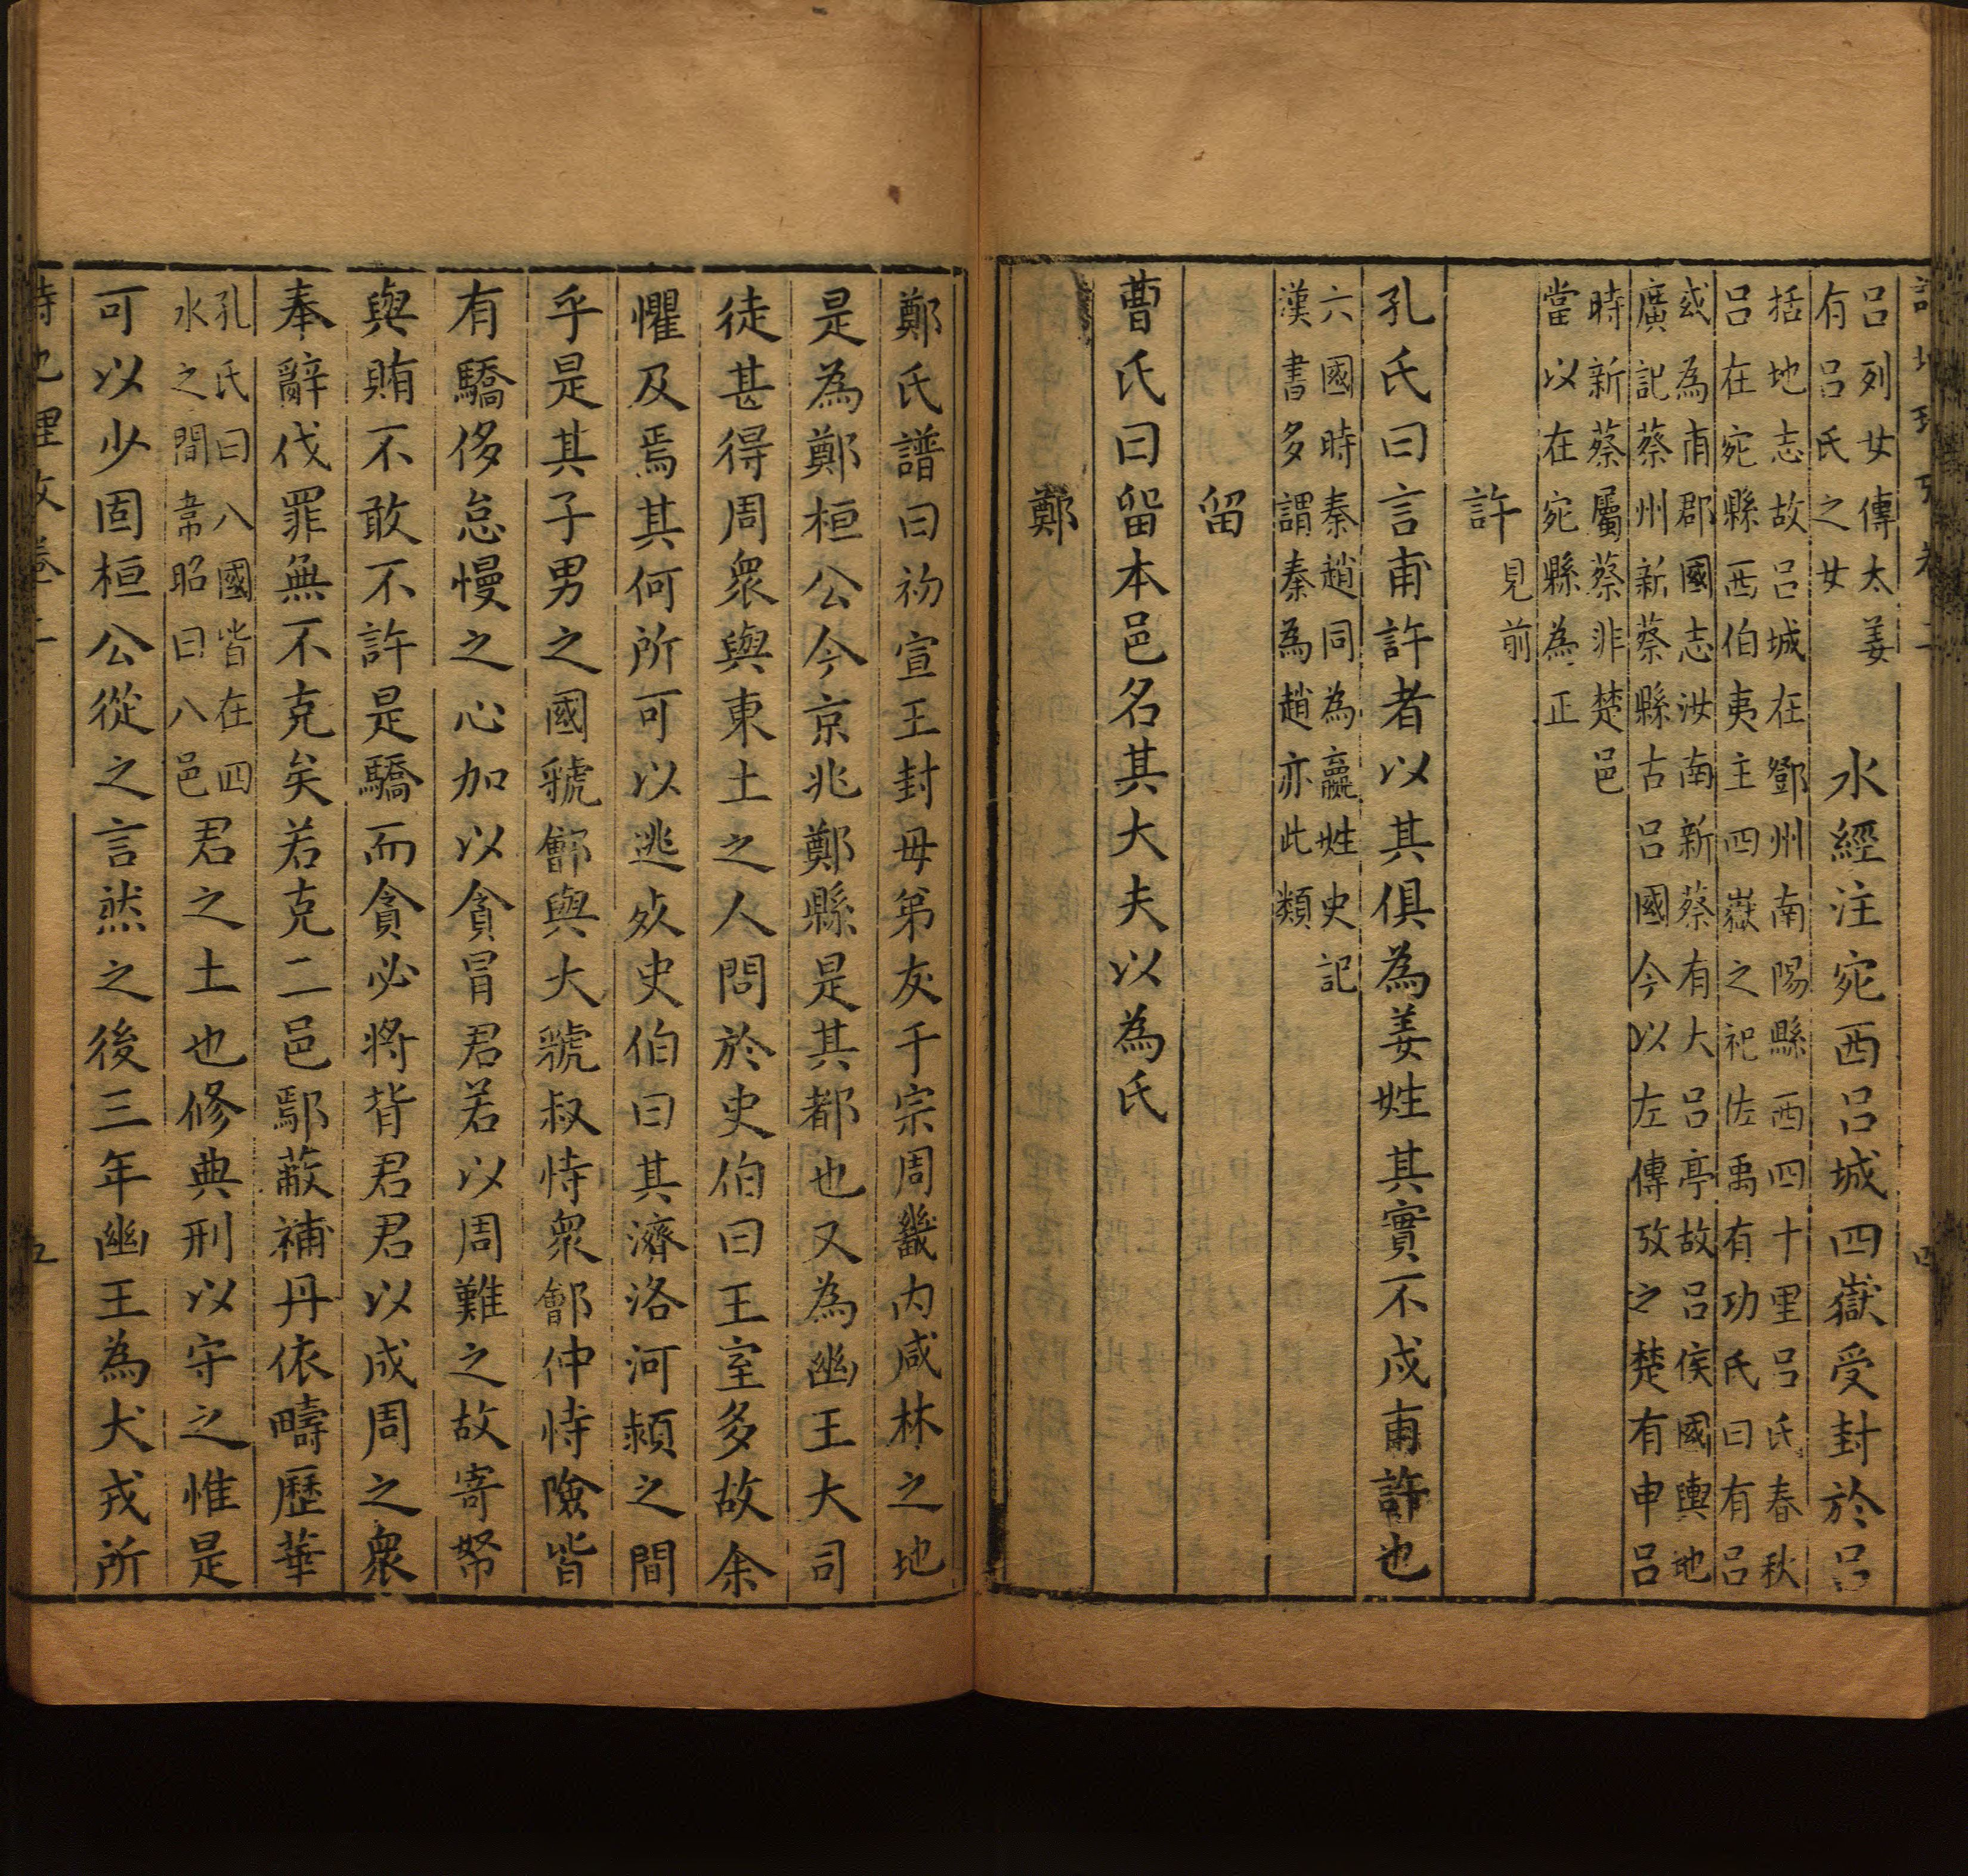 呂列女傳太姜
有呂氏之女
水經注宛西呂城四嶽受封於呂
括地志故呂城在鄧州南陽縣西四十里呂氏春秋
呂在宛縣西伯夷主四嶽之祀佐禹有功氏曰有呂
或為甫郡國志汝南新蔡有大呂亭故呂侯國輿地
廣記蔡州新蔡縣古呂國今以左傳攷之楚有申呂
時新蔡屬蔡非楚邑
當以在宛縣為正
許見前
孔氏曰言甫許者以其俱為姜姓其實不戍甫許也
六國時秦趙同為嬴姓史記
漢書多謂秦為趙亦此類
留
曹氏曰留本邑名其大夫以為氏
鄭
鄭氏譜曰初宣王封毋弟友于宗周畿内咸林之地
是為鄭桓公今京兆鄭縣是其都也又為幽王大司
徒甚得周衆與東土之人問於史伯曰王室多故余
懼及焉其何所可以逃死史伯曰其濟洛河潁之間
乎是其子男之國虢鄶與大虢叔恃衆鄶仲恃險皆
有驕侈怠慢之心加以貪冒君若以周難之故寄帑
與賄不敢不許是驕而貪必將背君君以成周之衆
奉辭伐罪無不克矣若克二邑鄢蔽補丹依疇歷華
孔氏曰八國皆在四
水之間韋昭曰八邑
君之土也修典刑以守之惟是
可以少固桓公從之言然之後三年幽王為犬戎所
詩地理攷卷二
五